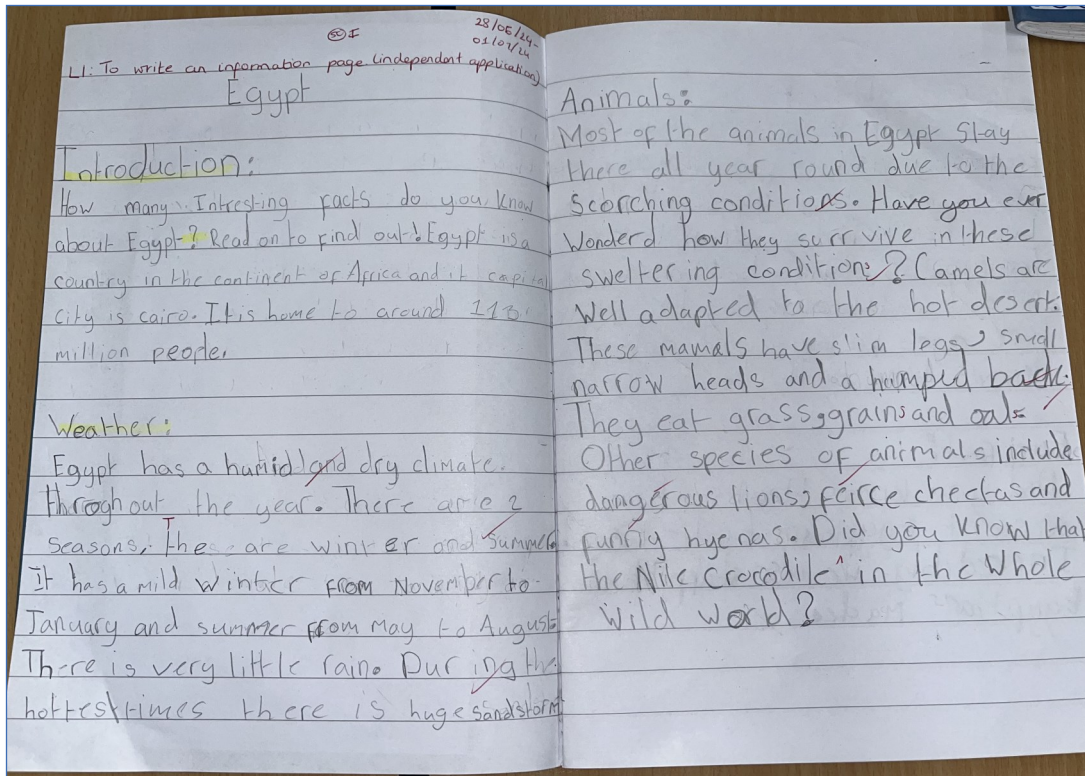 I
28/06/24-
01/07/24
LI: To write an information page (independent application)
Egypt
Introduction:
How many Intresting facts do you know
about Egypt? Read on to find out! Egypt is a
country in the continent of Africa and it capital
city is cairo. It is home to around 113
million people.
Weather:
Egypt has a humid and dry climate.
throghout the year. There are 2
seasons, The are winter and summer
It has a mild winter from November to
January and summer from May to August
There is very little rain. During the
hottest times there is huge sandstorm
Animals:
Most of the animals in Egypt Stay
there all year round due to the
scorching conditions. Have you ever
Wonderd how they surrvive in these
sweltering conditions? Camels are
Well adapted to the hot desert.
These mamals have slim legs, small
narrow heads and a humped back.
They eat grass, grains and oats
Other species of animals include
dangerous lions, feirce cheetas and
funny hyenas. Did you know that
the Nile crocodile ^ in the whole
wild world?